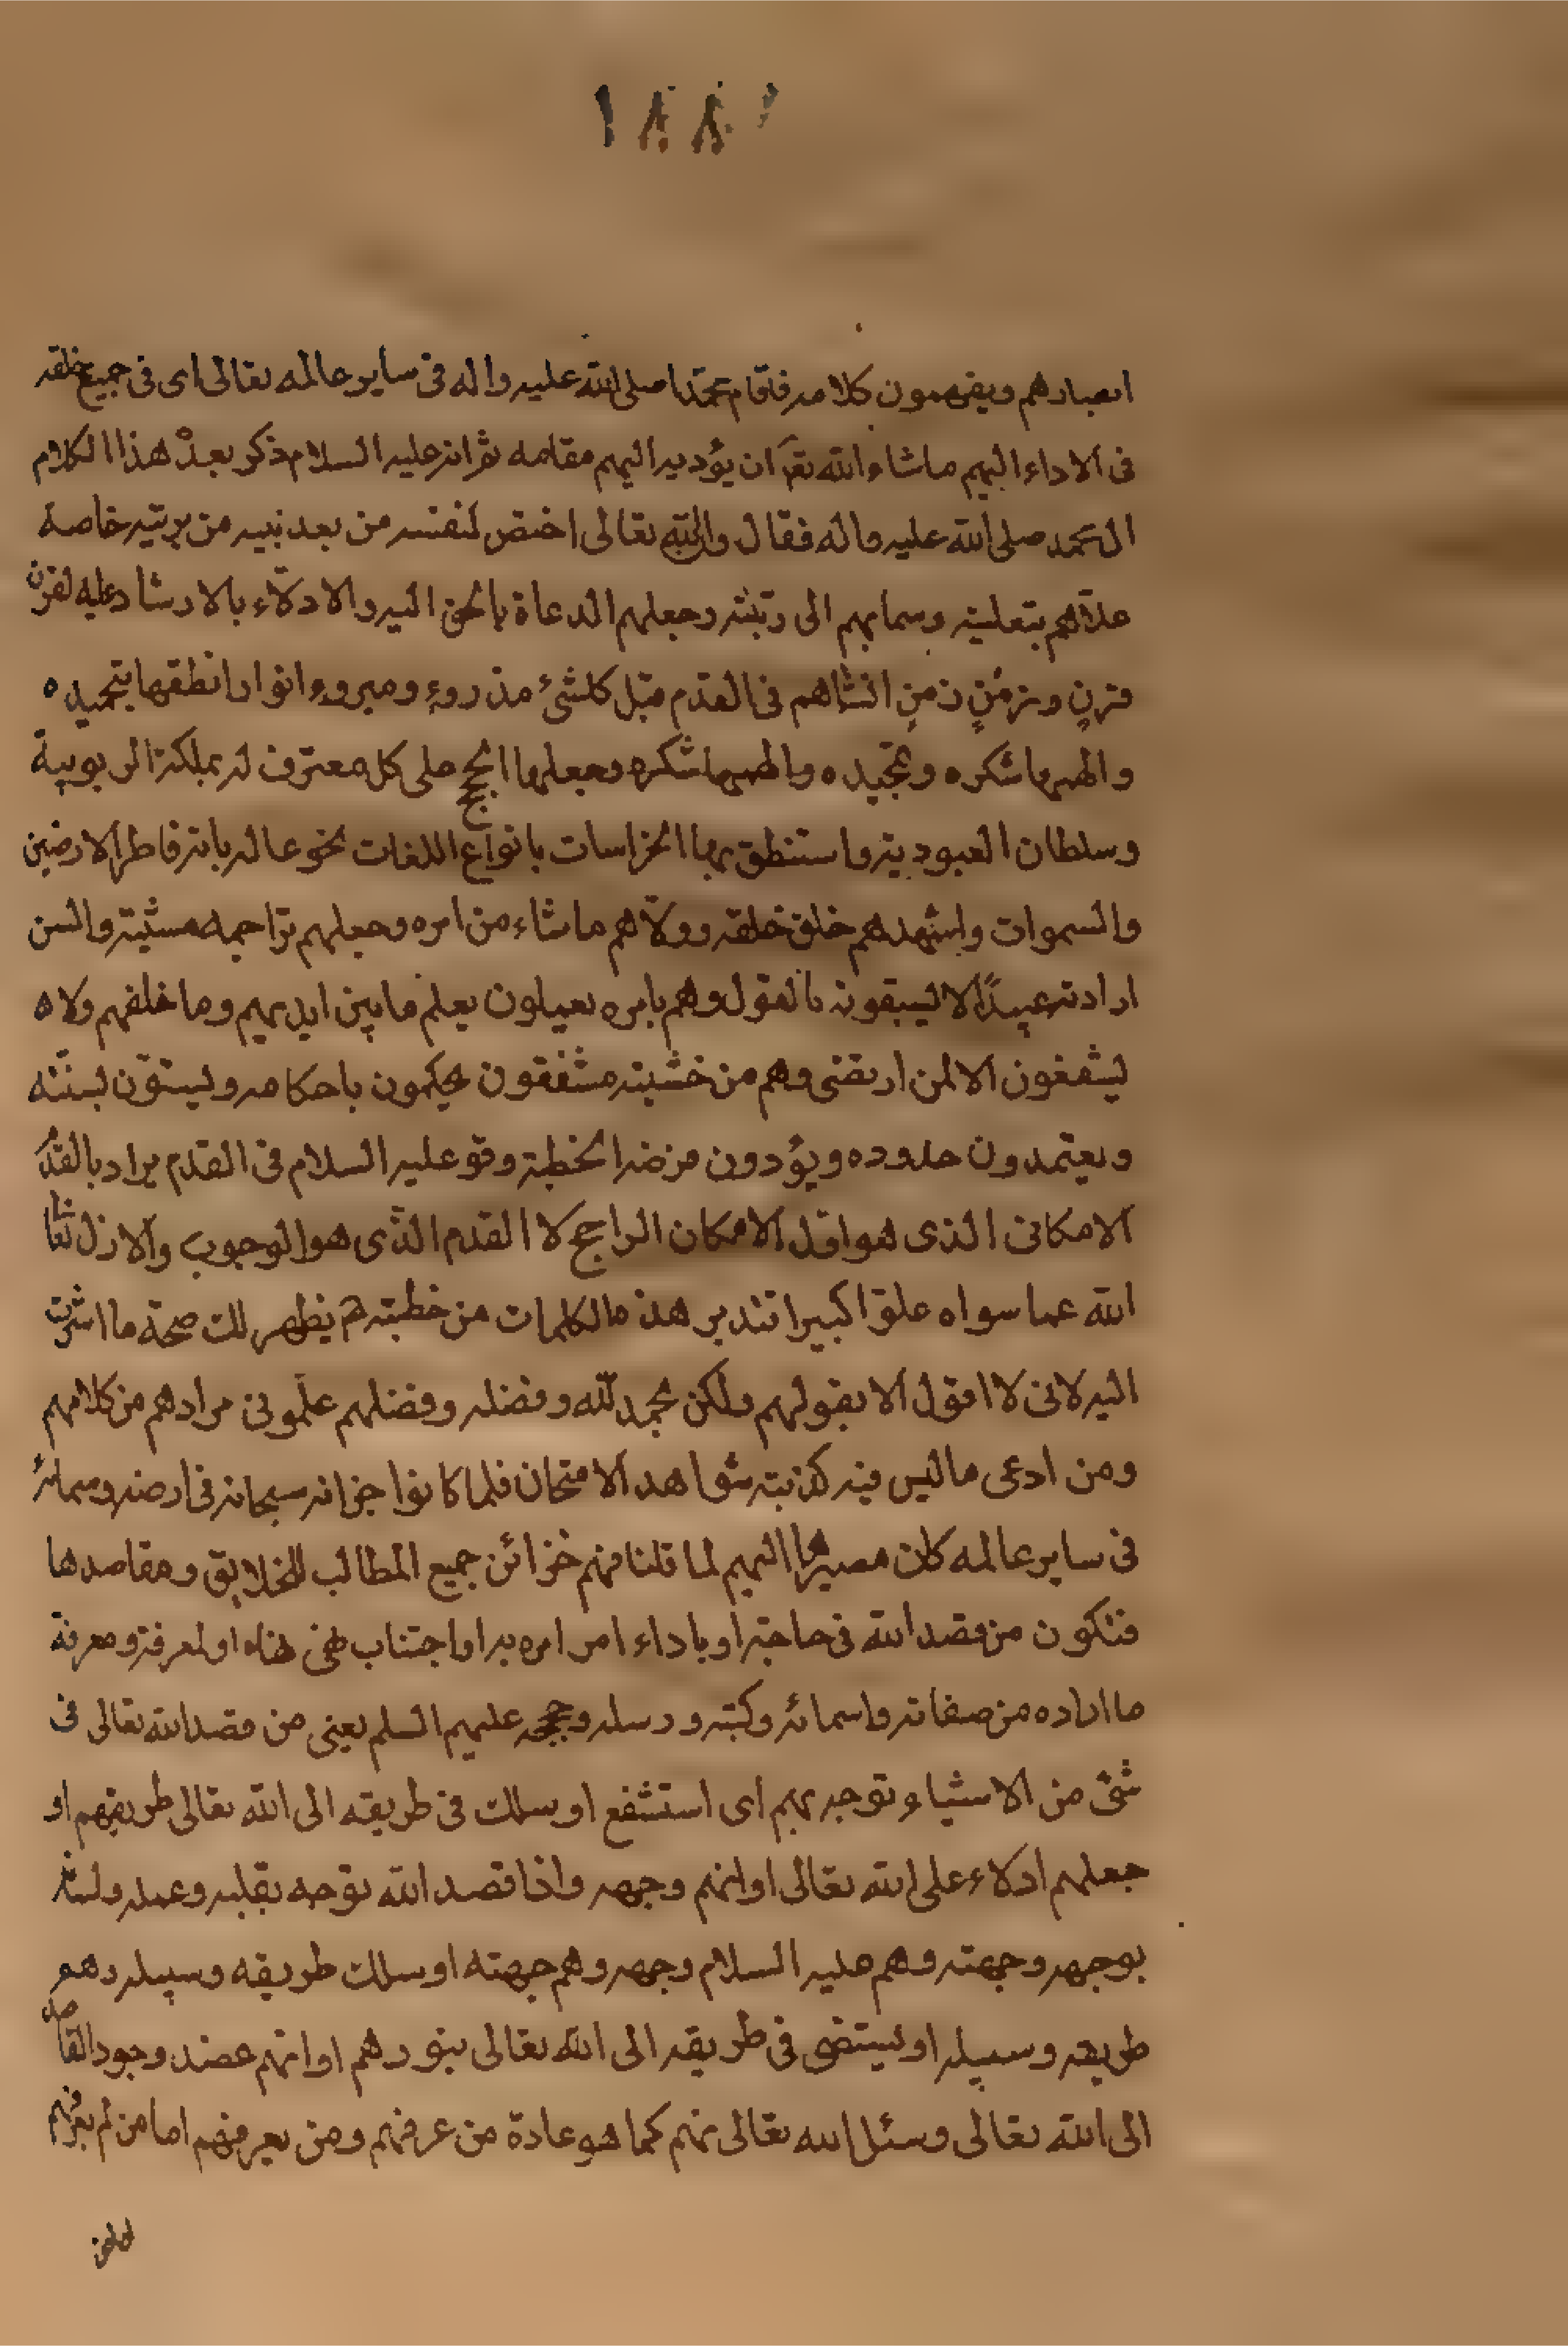 ١٨٨
ابصارهم ويفهمون كلامه فاقام محمدا صلى الله عليه واله فى ساير عالمه تعالى اى فى جميع خلقه
فى الاداء اليهم ماشاء الله تع ان يؤديه اليهم مقامه ثم انه عليه السلام ذكر بعد هذا الكلام
ال محمد صلى الله عليه واله فقال وان الله تعالى اختص لنفسه من بعد نبيه من بريته خاصة
علاهم بتعليته وسمابهم الى رتبته وجعلهم الدعاة بالحق اليه والادلاء بالارشاد عليه لقرن
قرنٍ وزمنٍ زمنٍ انشاهم فى القدم قبل كلشئ مذروءٍ ومبروءٍ انوارا انطقها بتحميده
والهمها شكره وتمجيده والهمها شكره وجعلها الحجج على كل معترف له بملكة الربوبية
وسلطان العبودية واستنطق بها الخراسات بانواع اللغات بخوعا له بانه فاطر الارضين
والسموات واشهدهم خلق خلقه وولاهم ماشاء من امره وجعلهم تراجمه مشيته والسن
ارادته عبيدًا لا يسبقونه بالقول وهم بامره يعملون يعلم مابين ايديهم وما خلفهم ولاه
يشفعون الا لمن ارتضى وهم من خشيته مشفقون يحكمون باحكامه ويستنون بسنته
ويعتمدون حدوده ويؤدون فرضه الخطبة وقو عليه السلام فى القدم يراد بالقدم
الامكانى الذى هو اول الامكان الراجح لا القدم الذى هو الوجوب والازل تعا
الله عما سواه علوّا كبيرا تتدبر هذه الكلمات من خطبته ع يظهر لك صحة ما اشرت
اليه لانى لا اقول الا بقولهم ولكن بحمد لله وفضله وفضلهم علّمونى مرادهم من كلامهم
ومن ادعى ماليس فيه كذبته شواهد الامتحان فلما كانوا خزانه سبحانه فى ارضه وسمائه
فى ساير عالمه كان مصيرها اليهم لما قلنا فهم خزائن جميع المطالب للخلايق ومقاصدها
فتكون من قصد الله فى حاجته او باداء امر امره به او اجتناب نهى نهاه او لمعرفته ومعرفة
ما اراده من صفاته واسمائه وكتبه ورسله وحججه عليهم السلم يعنى من قصد الله تعالى فى
شئ من الاشياء توجه بهم اى استشفع او سلك فى طريقه الى الله تعالى طريقهم او
جعلهم ادلاء على الله تعالى او انهم وجهه واذا قصد الله توجه بقلبه وعمله ولسانه
بوجهه وجهته وهم عليه السلام وجهه وهم جهته او سلك طريقه وسبيله وهم
طريقه وسبيله او يستضئ فى طريقه الى الله تعالى بنورهم او انهم عضد وجود القاصد
الى الله تعالى وسئل الله تعالى بهم كما هو عادة من عرفهم ومن يعرفهم اما من لم يعرفهم
اما من